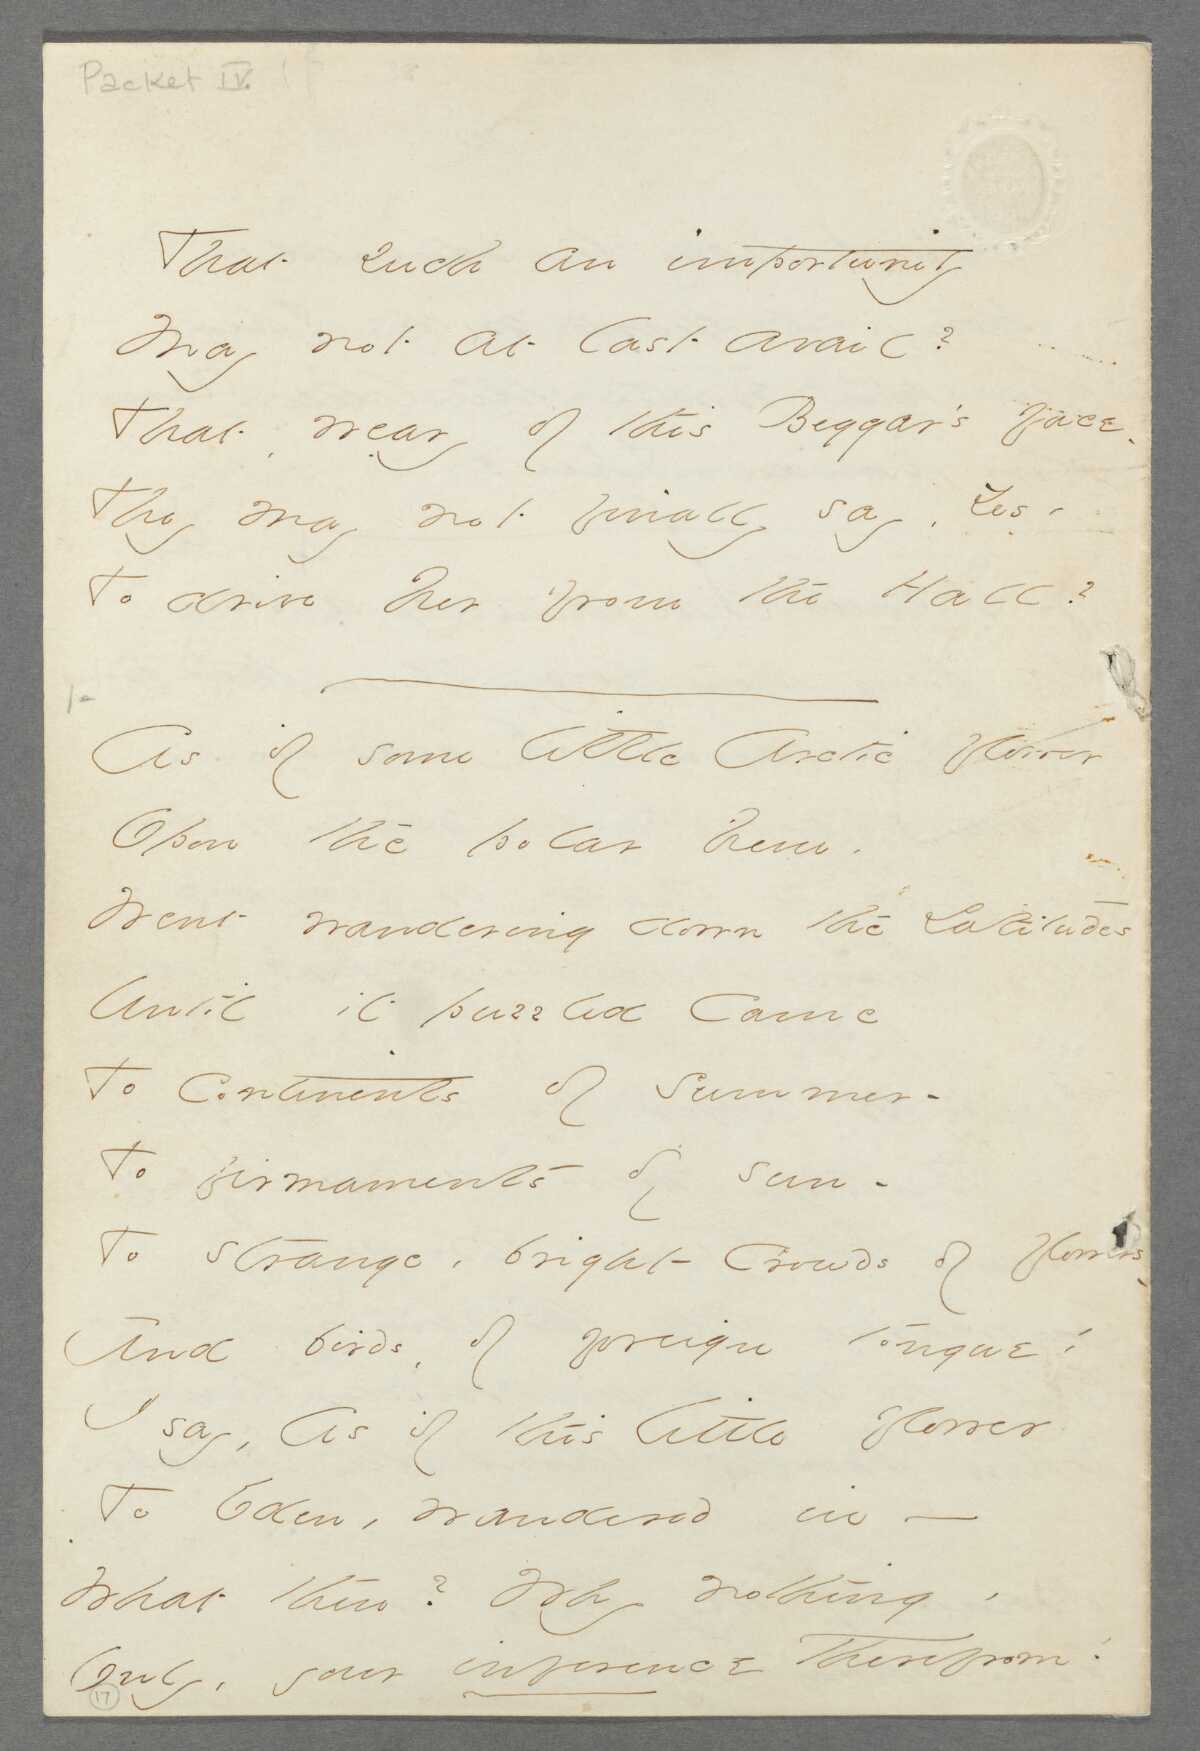 Packet IV.
That such an importunity
May not at last avail?
That, weary of this Beggar's face,
They may not finally say, Yes -
To drive her from the Hall?
As if some little Arctic flower
Opon the polar hem -
Went wandering down the Latitudes
Until it puzzled came
To Continents of summer -
To firmaments of sun -
To strange, bright Crowds of flowers -
And birds, of foreign tongue!
I say, As if this little flower
To Eden, wandered in —
What then? Why nothing,
Only, your inference therefrom!
17